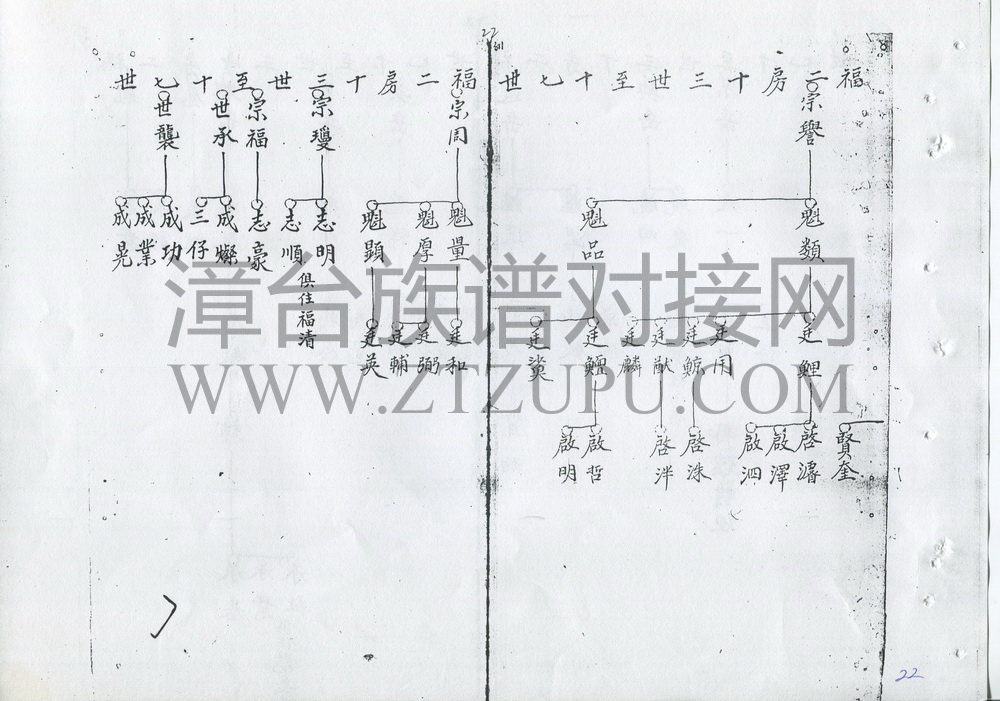 福二房十三世至十七世
宗譽
魁類
魁品
廷鯉
廷用
廷鯨
廷猷
廷麟
廷鱣
廷
賢奎
啓濬
啟澤
啟泗
啓洙
啓泮
啟哲
啟明
福二房十三世至十七世
宗周
宗瓊
宗福
世承
世襲
魁量
魁厚
魁顕
志明
志順
志豪
成燦
三仔
成功
成業
成晃
俱住福清
廷和
廷弼
廷輔
廷英
漳台族谱对接网
WWW.ZTZUPU.COM
22
22